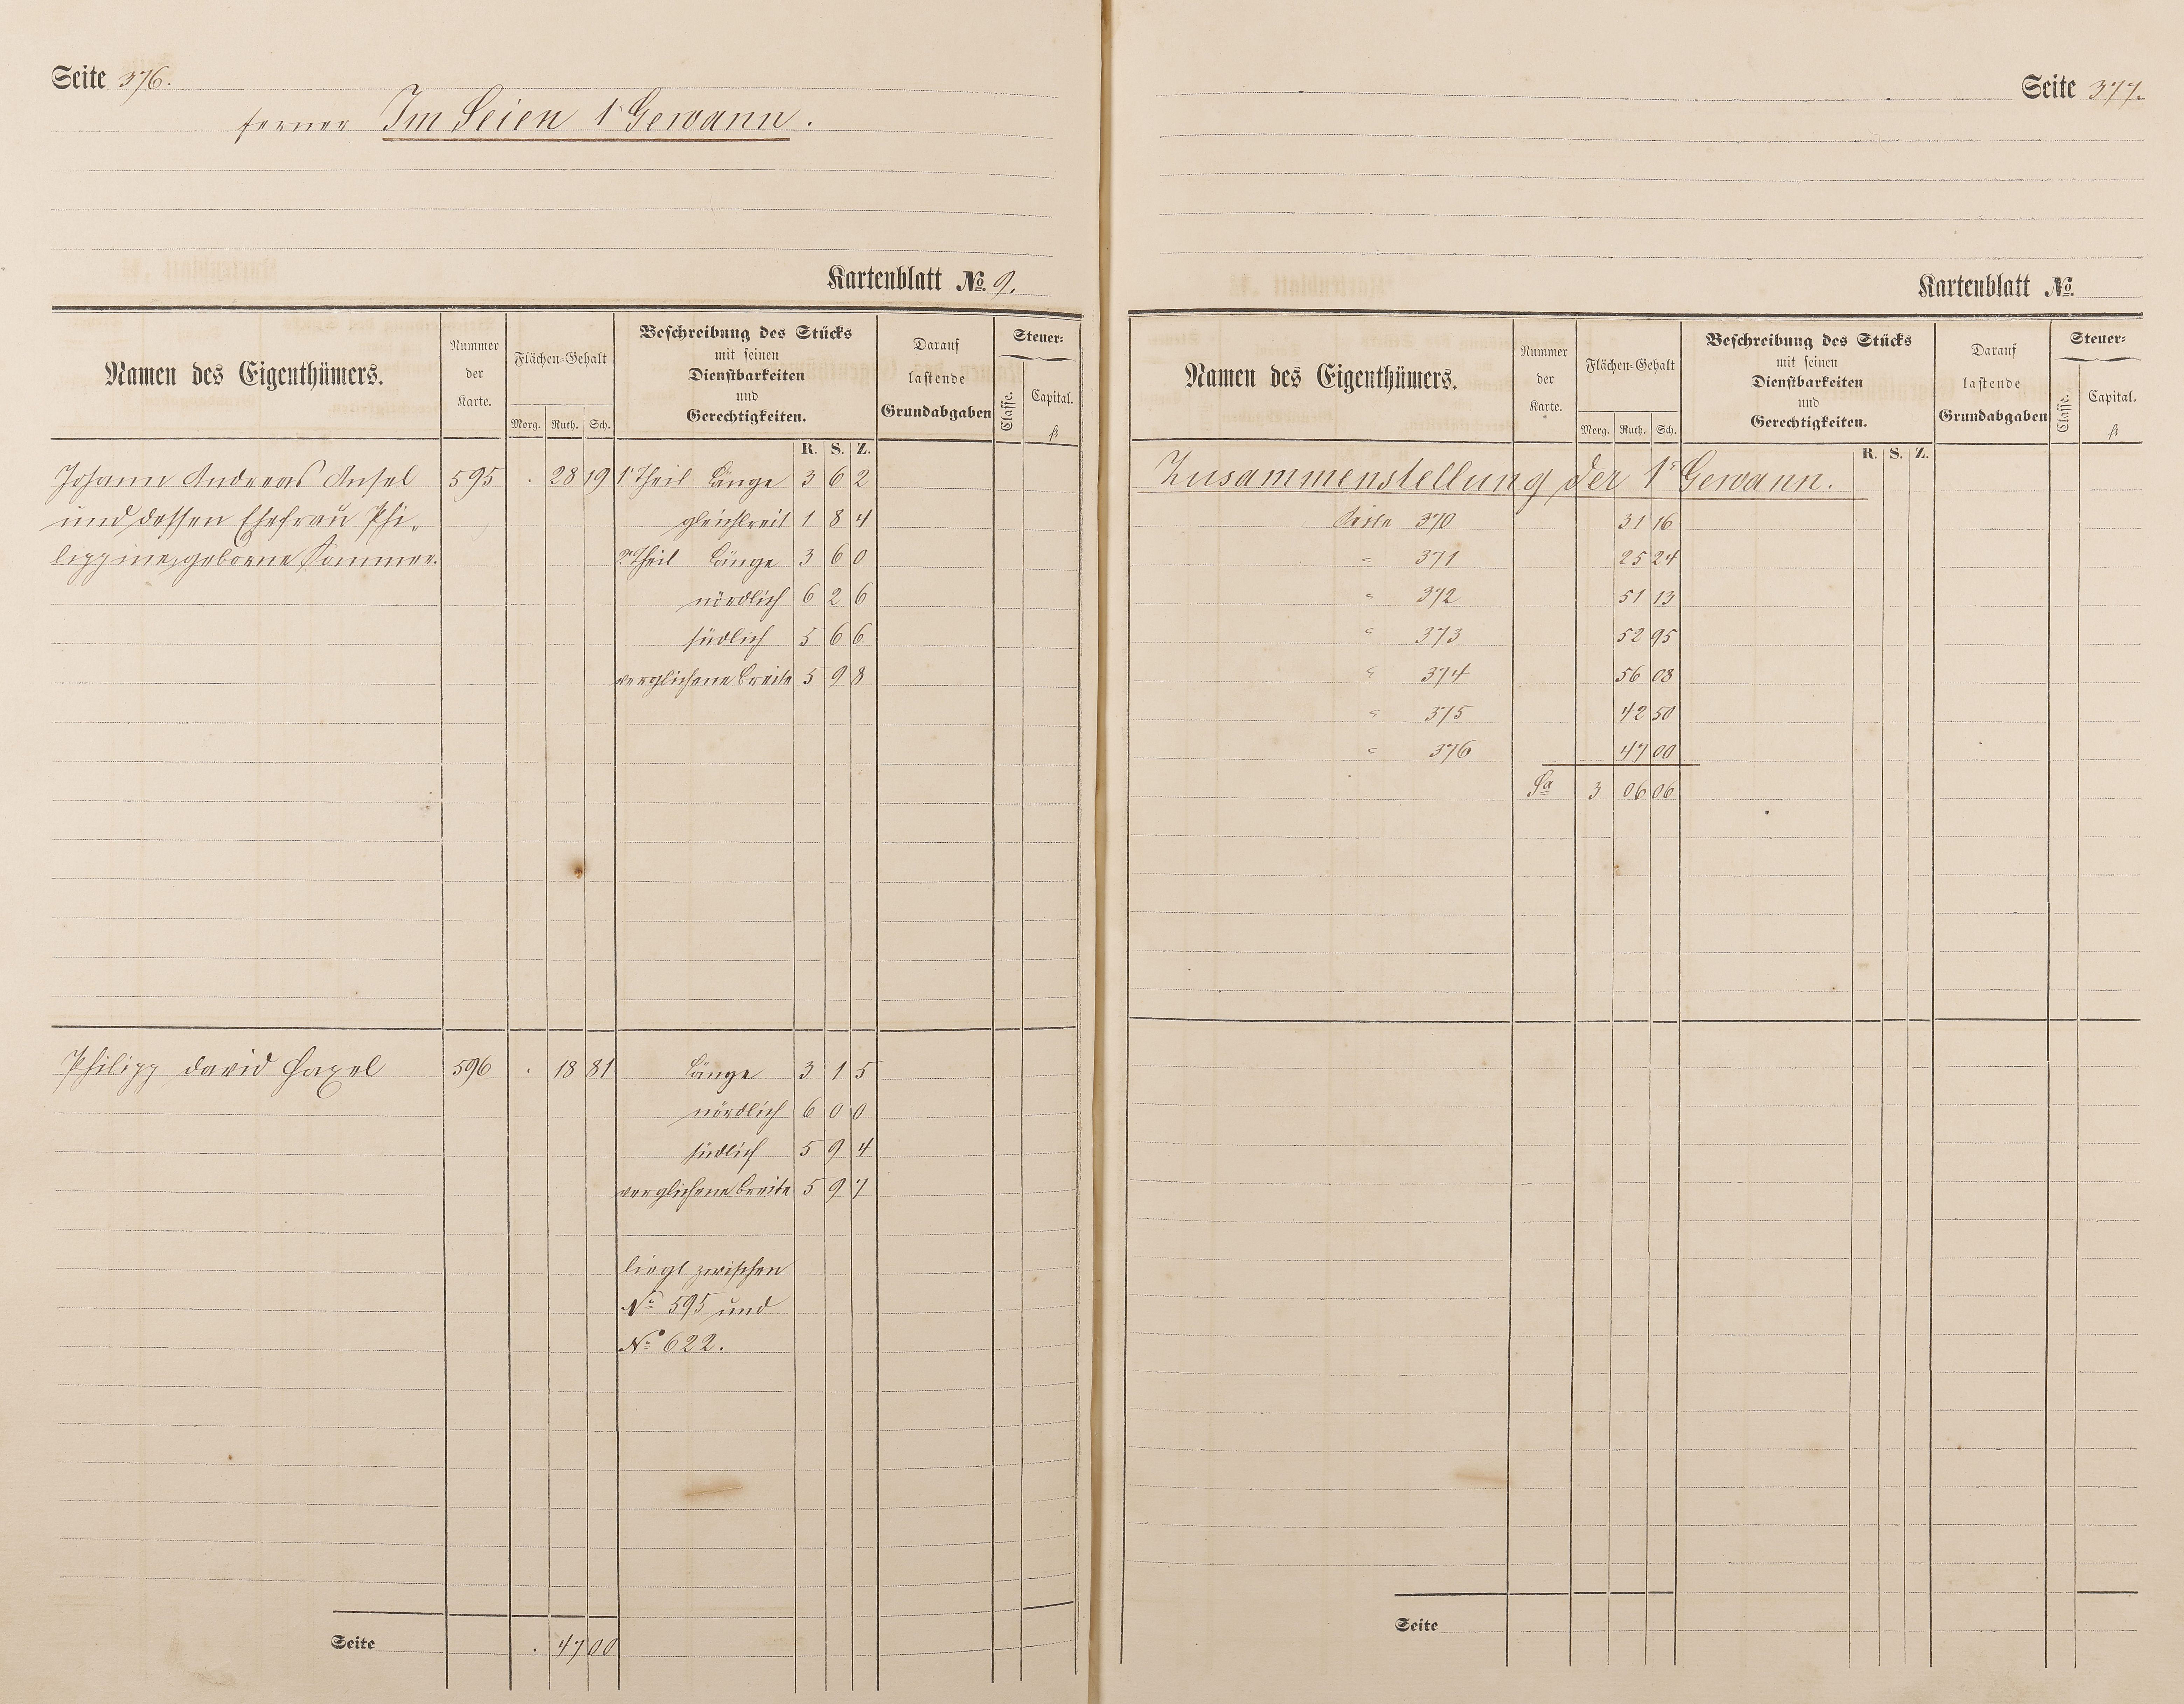 Seite 376.
ferner Im Seien 1' Gewann.
Kartenblatt No. 9.
Namen des Eigenthümers.
Nummer der Karte.
Flächen-Gehalt
Morg. Ruth. Sch.
Beschreibung des Stücks
mit seinen
Dienstbarkeiten
und
Gerechtigkeiten.
Darauf
lastende
Grundabgaben
Steuer-
Classe.
Capital.
fl
R. S. Z.
Johann Andreas Ansel 595 . 28 19 1' Theil Länge 3 6 2
und dessen Ehefrau Phi- gleichbreit 1 8 4
lippine, geborne Sommer. 2' Theil Länge 3 6 0
nördlich 6 2 6
südlich 5 6 6
verglichene Breite 5 9 8
Philipp David Haxel 596 . 18 81 Länge 3 1 5
nördlich 6 0 0
südlich 5 9 4
verglichene Breite 5 9 7
liegt zwischen
No 595 und
No 622.
Seite . 47 00
Seite 377.
Kartenblatt No.
Namen des Eigenthümers.
Nummer der Karte.
Flächen-Gehalt
Morg. Ruth. Sch.
Beschreibung des Stücks
mit seinen
Dienstbarkeiten
und
Gerechtigkeiten.
Darauf
lastende
Grundabgaben
Steuer-
Classe.
Capital.
fl
R. S. Z.
Zusammenstellung der 1' Gewann.
Seite 370 31 16
" 371 25 24
" 372 51 13
" 373 52 95
" 374 56 08
" 375 42 50
" 376 47 00
Sa 3 06 06
Seite